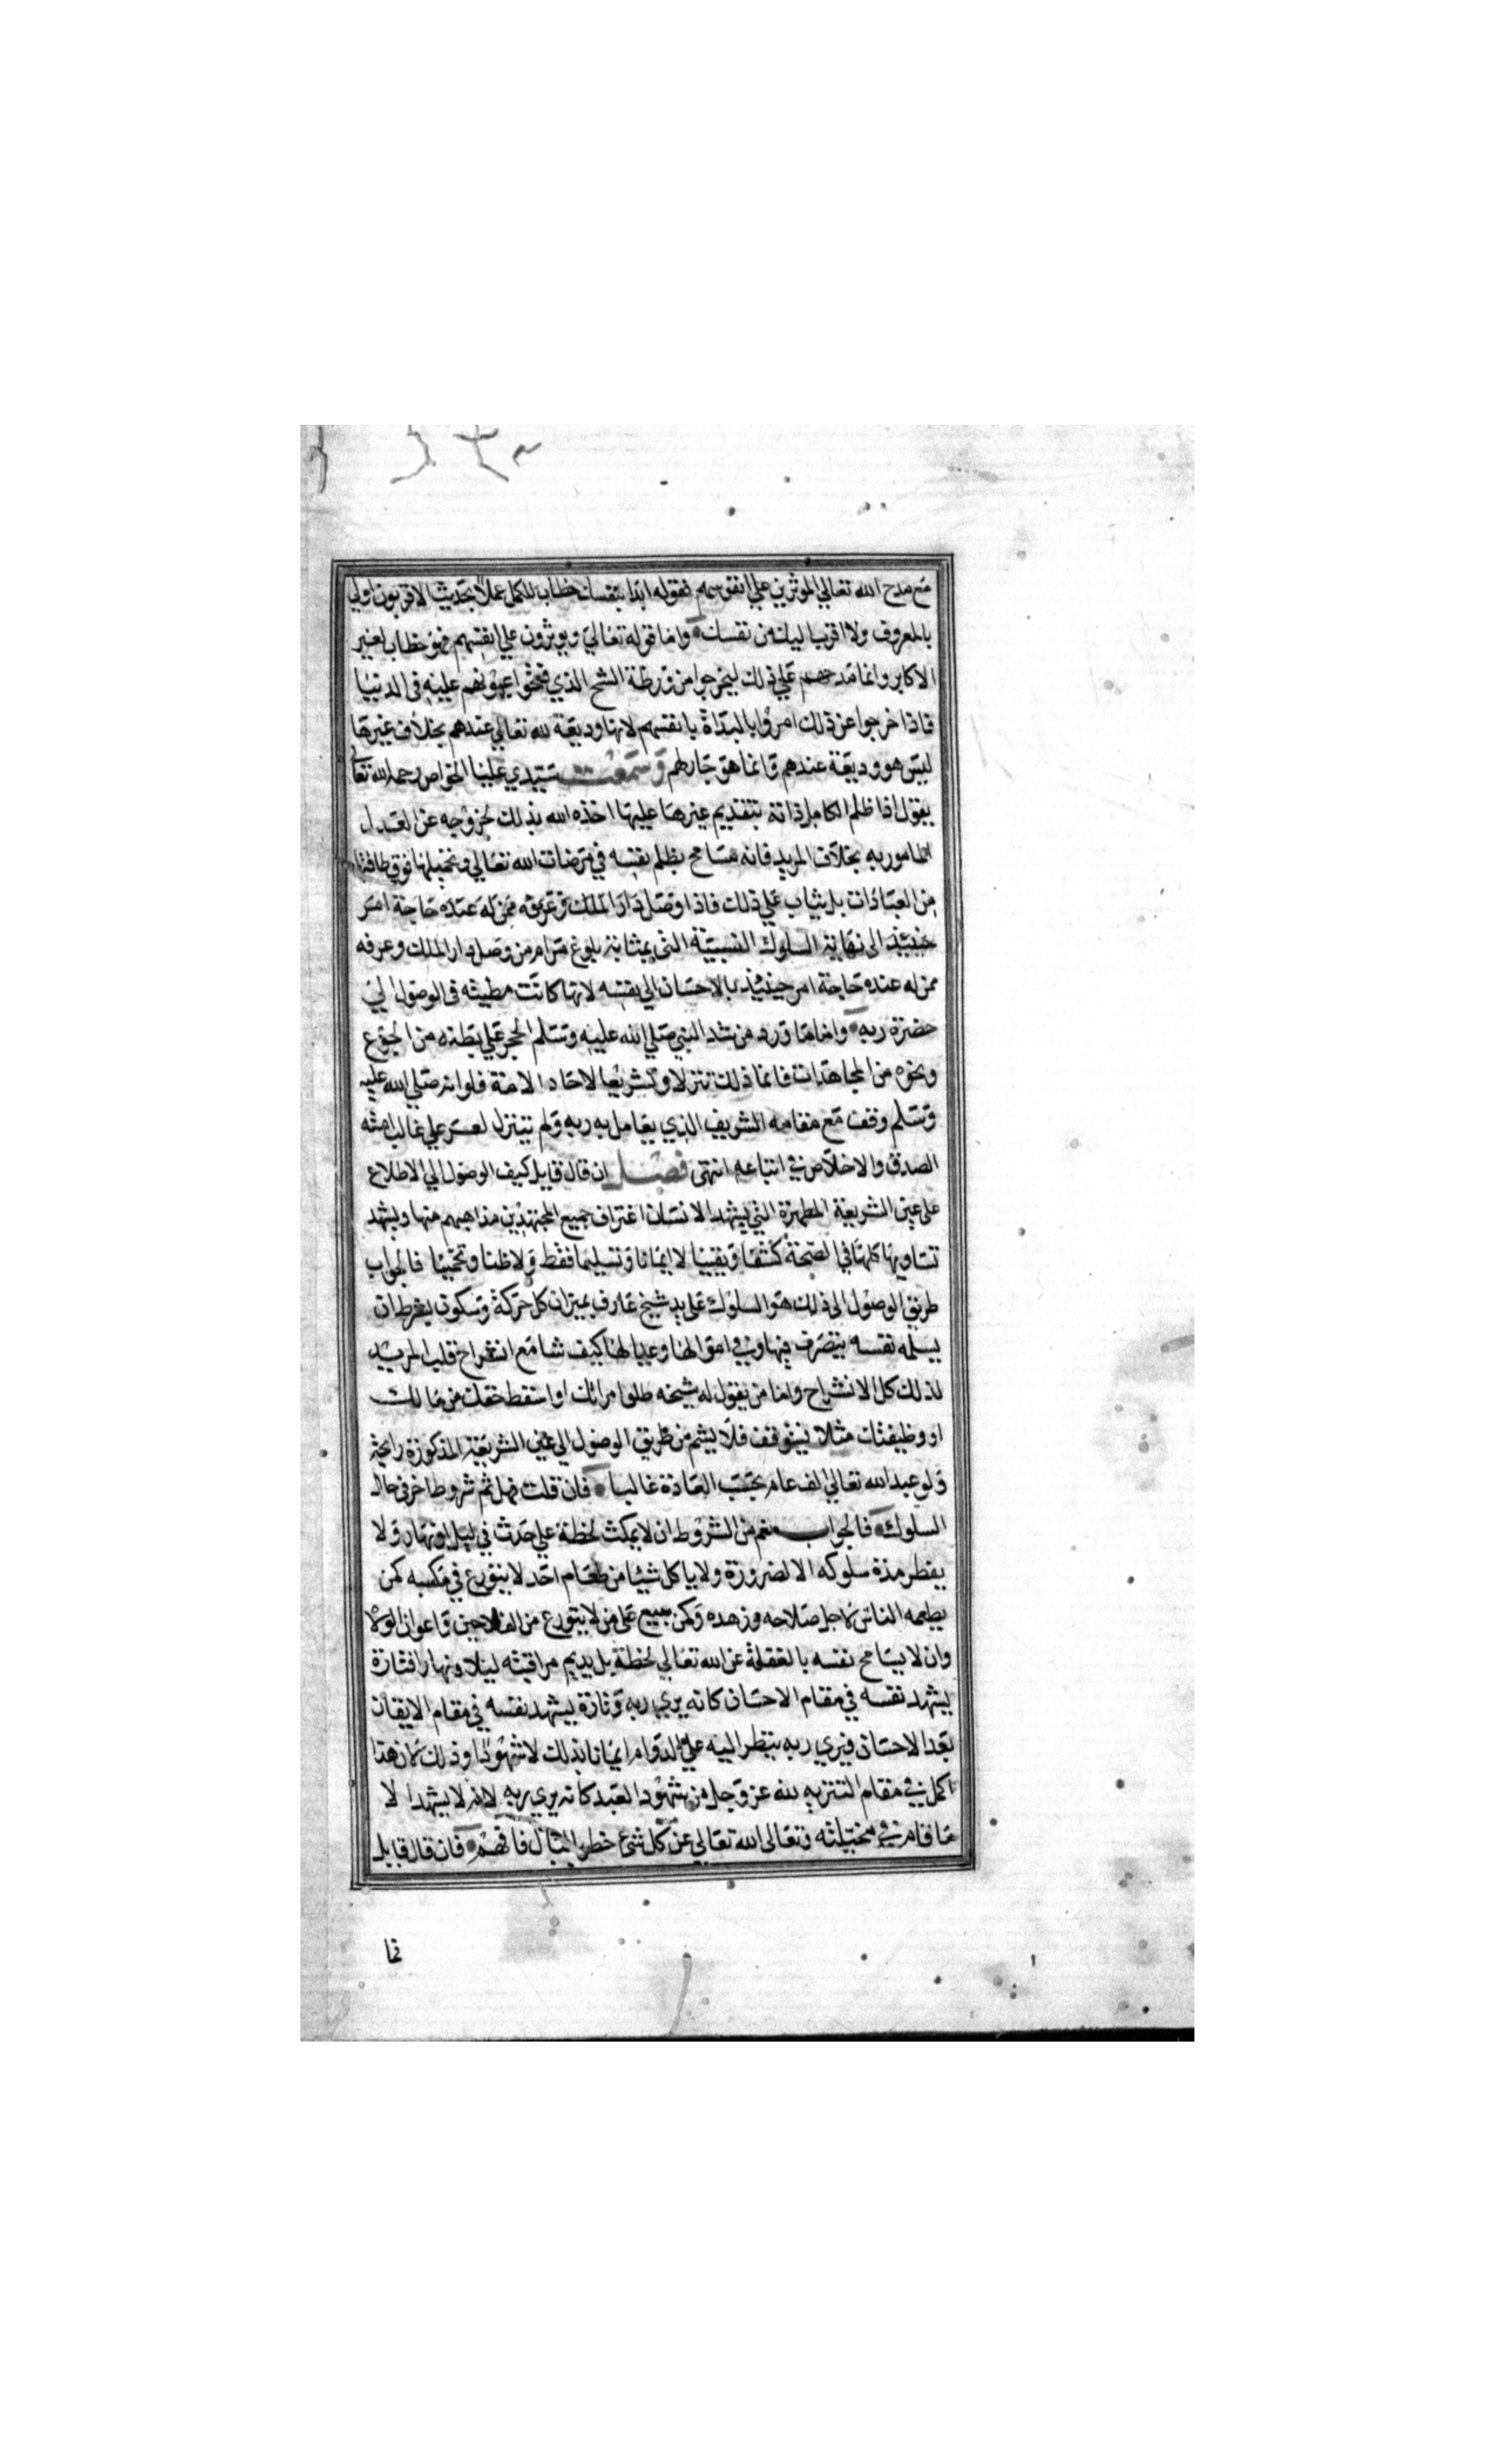 مع مدح الله تعالي الموثرين علي انفوسهم فقوله ابدا بنفسك خطاب للكمل عملا بحديث الاقربون اولي
بالمعروف ولا اقرب اليك من نفسك واما قوله تعالي ويوثرون علي انفسهم فهو خطاب لغير
الاكابر وانما مدحهم علي ذلك ليخرجوا من ورطة الشح الذي فتحوا عيونهم عليه في الدنيا
فاذا خرجوا عن ذلك امروا بالبداة بانفسهم لانها وديعة لله تعالي عندهم بخلاف غيرها
ليس هو وديعة عندهم وانما هو جار لهم وسمعت سيدي عليا الخواص رحمه الله تعالي
يقول اذا ظلم الكامل ذاته بتقديم غيرها عليها اخذه الله بذلك لخروجه عن العدل
المامور به بخلاف المريد فانه مسامح بظلم نفسه في مرضات الله تعالي وتحميلها فوق طاقتها
من العبادات بل يثاب علي ذلك فاذا وصل دار الملك وعرفه ممن له عنده حاجة امر
حينئذ الى نهاية السلوك النسبية التي بمثابة بلوغ مرام من وصل دار الملك وعرفه
ممن له عنده حاجة امر حينئذ بالاحسان الي نفسه لانها كانت مطيته في الوصول الي
حضرة ربه واما ما ورد من شد النبي صلي الله عليه وسلم الحجر علي بطنه من الجوع
ونحوه من المجاهدات فانما ذلك تنزلا وتشريعا لاحاد الامة فلوانه صلي الله عليه
وسلم وقف مع مقامه الشريف الذي يعامل به ربه ولم يتنزل لعسر علي غالب امته
الصدق والاخلاص في اتباعه انتهى فصل ان قال قايل كيف الوصول الي الاطلاع
على عين الشريعة المطهرة التي يشهد الانسان اغتراف جميع المجتهدين مذاهبهم منها ويشهد
تساويها كلها في الصحة كشفا ويقينا لا ايمانا وتسليما فقط ولا ظنا وتخمينا فالجواب
طريق الوصول الى ذلك هو السلوك على يد شيخ عارف بميزان كل حركة وسكون بشرط ان
يسلمه نفسه يتصرف فيها وفي اموالها وعيالها كيف شا مع انشراح قلب المريد
لذلك كل الانشراح واما من يقول له شيخه طلق امراتك او اسقط حقك من مالك
او وظيفتك مثلا فيتوقف فلا يشم من طريق الوصول الي عين الشريعة المذكورة رايحة
ولو عبد الله تعالي الف عام بحسب العادة غالبا فان قلت فهل ثم شروط اخر في حال
السلوك فالجواب نعم من الشروط ان لا يمكث لحظة علي حدث في ليل او نهار ولا
يفطر مدة سلوكه الا لضرورة ولا ياكل شيئا من طعام احد لا يتورع في مكسبه كمن
يطعمه الناس لاجل صلاحه وزهده وكمن يبيع على من لا يتورع من الفلاحين واعوان الولاة
وان لا يسامح نفسه بالغفلة عن الله تعالي لحظة بل يديم مراقبته ليلا ونهارا فتارة
يشهد نفسه في مقام الاحسان كانه يري ربه وتارة يشهد نفسه في مقام الايقان
بعد الاحسان فيري ربه ينظر اليه علي الدوام ايمانا بذلك لا شهودا وذلك لان هذا
اكمل في مقام التنزيه لله عز وجل من شهود العبد كانه يري ربه لانه لا يشهد الا
ما قام في مخيلته وتعالى الله تعالي عن كل شي خطر بالبال فافهم فان قال قايل
فما